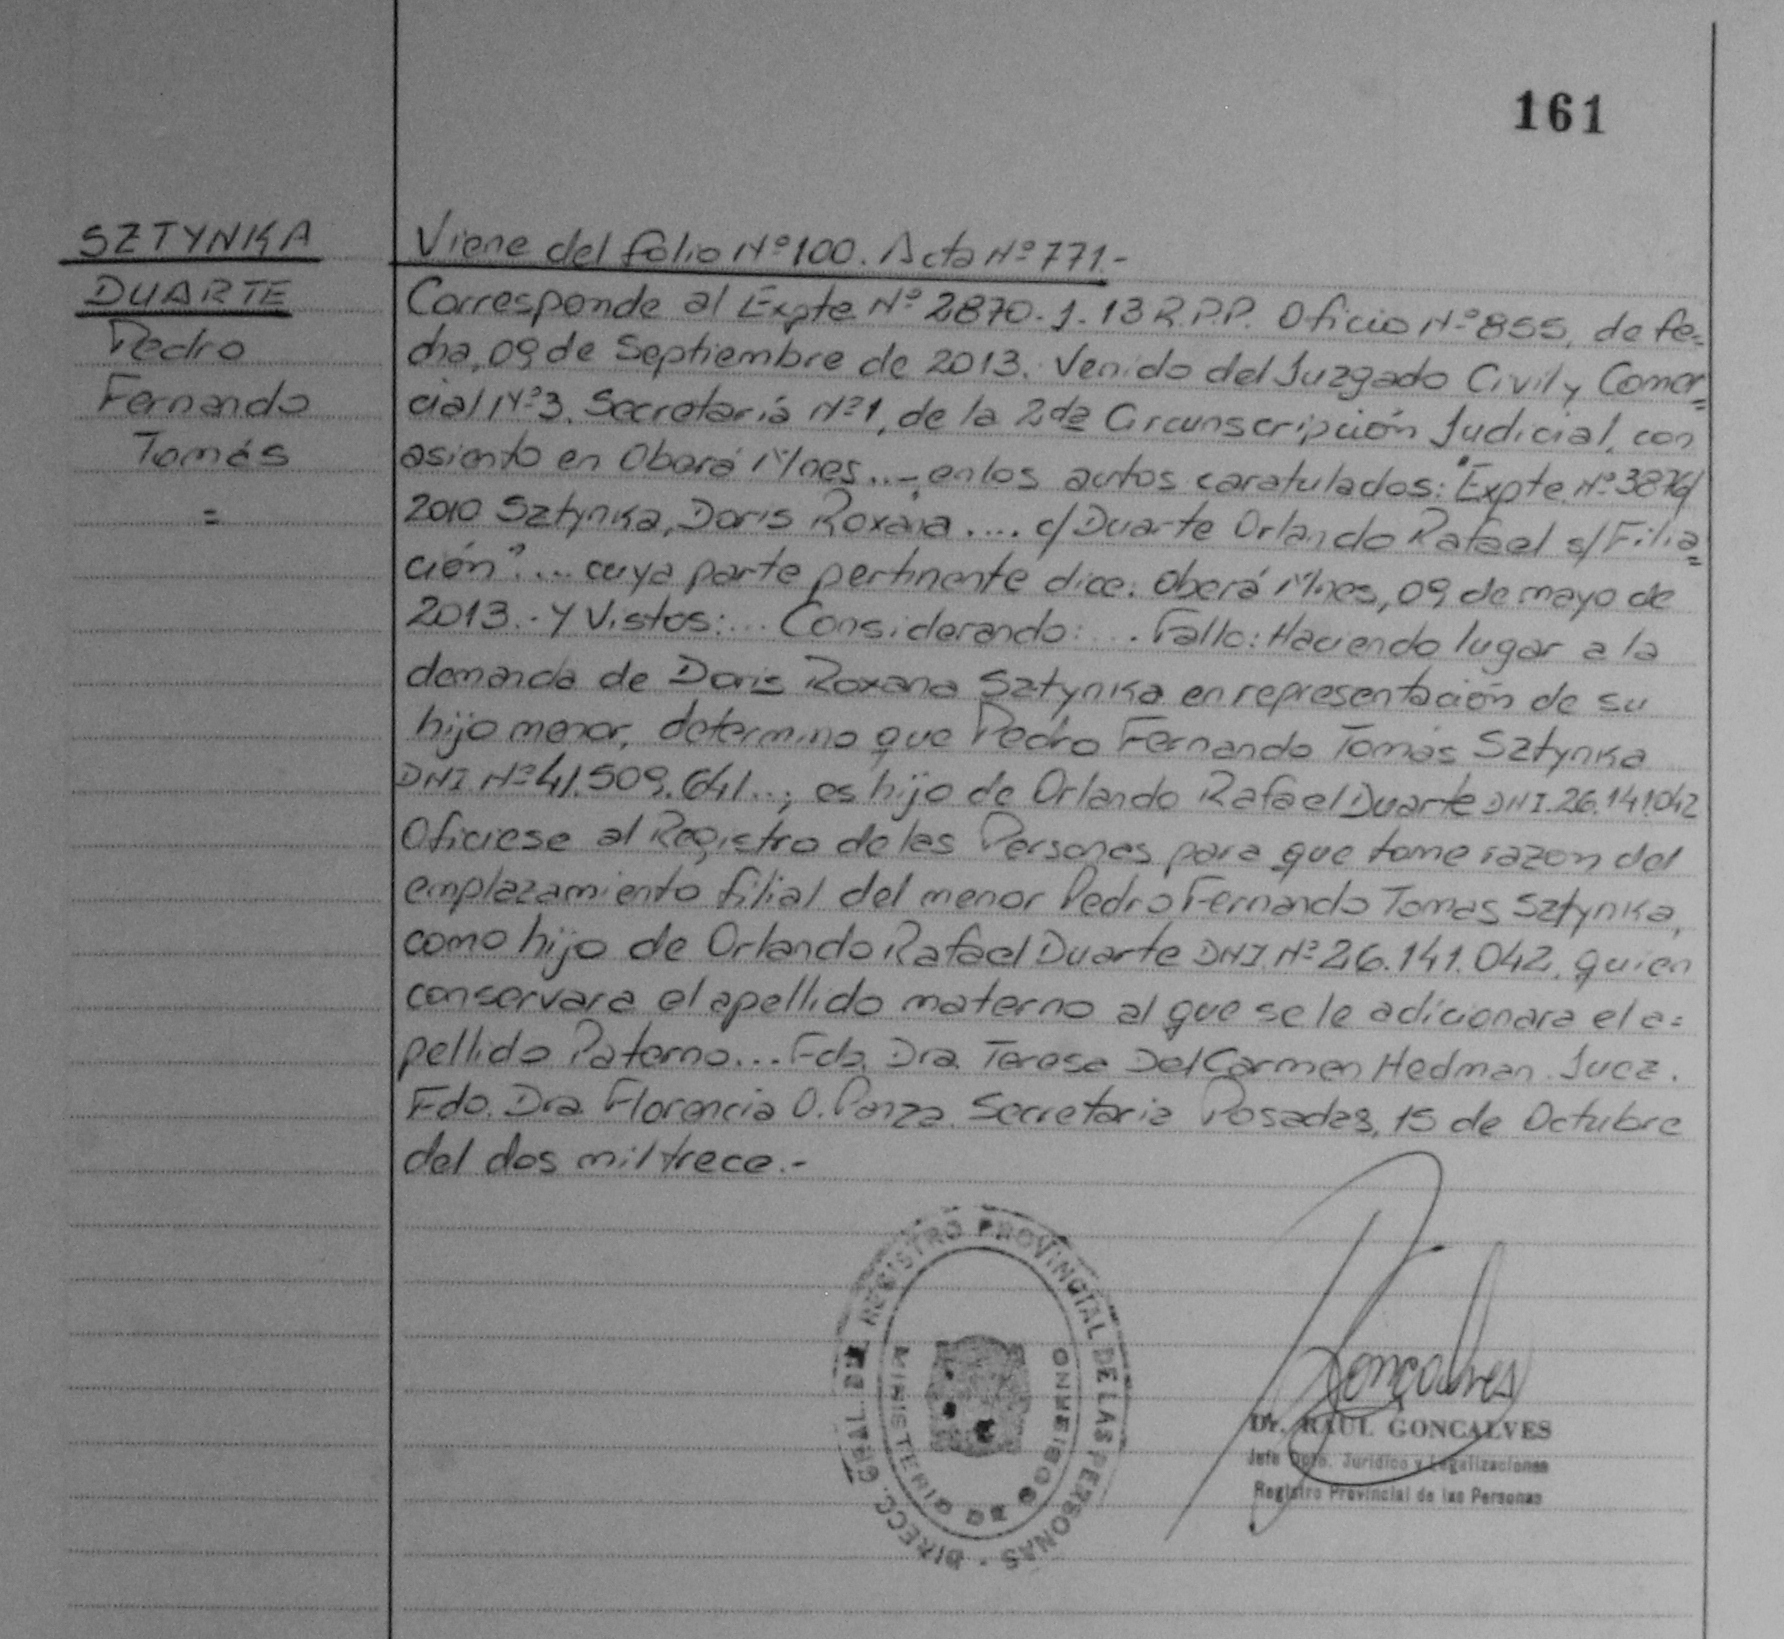 161
SZTYNKA
DUARTE
Pedro
Fernando
Tomás
=
Viene del folio Nº 100. Acta Nº 771.-
Corresponde al Expte Nº 2870.J.13 R.P.P. Oficio Nº 855, de fe=
cha, 09 de Septiembre de 2013. Venido del Juzgado Civil y Comer=
cial Nº 3. Secretaría Nº 1, de la 2da Circunscripción Judicial, con
asiento en Oberá Mnes...-, en los autos caratulados: "Expte Nº 3876/
2010 Sztynka, Doris Roxana .... c/ Duarte Orlando Rafael s/ Filia=
ción".... cuya parte pertinente dice: Oberá Mnes, 09 de mayo de
2013.- Y Vistos:... Considerando:... Fallo: Haciendo lugar a la
demanda de Doris Roxana Sztynka en representación de su
hijo menor, determino que Pedro Fernando Tomás Sztynka
DNI Nº 41.509.641...; es hijo de Orlando Rafael Duarte DNI. 26.141.042
Ofíciese al Registro de las Personas para que tome razon del
emplazamiento filial del menor Pedro Fernando Tomas Sztynka,
como hijo de Orlando Rafael Duarte DNI. Nº 26.141.042, quien
conservara el apellido materno al que se le adicionara el a=
pellido Paterno... Fdo. Dra. Teresa Del Carmen Hedman. Juez.
Fdo. Dra. Florencia O. Panza. Secretaria Posadas, 15 de Octubre
del dos mil trece.-
DIRECC. GRAL. DEL REGISTRO PROVINCIAL DE LAS PERSONAS
MINISTERIO DE GOBIERNO
Goncalves
Dr. RAUL GONCALVES
Jefe Dpto. Jurídico y Legalizaciones
Registro Provincial de las Personas